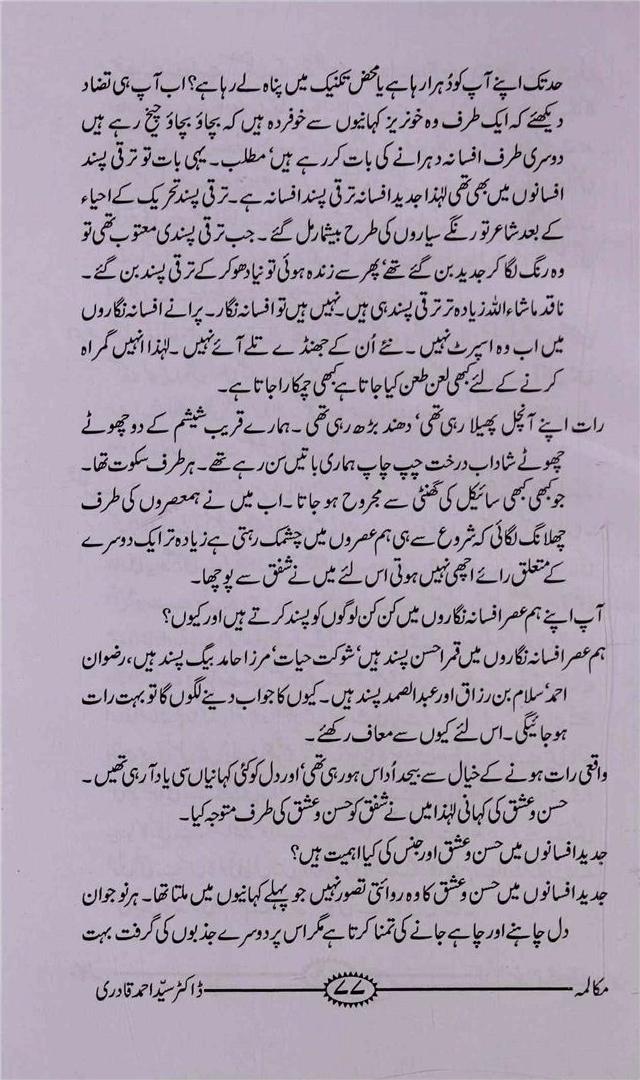 حد تک اپنے آپ کو دُہرا رہا ہے یا محض تکنیک میں پناہ لے رہا ہے؟ اب آپ ہی تضاد
دیکھئے کہ ایک طرف وہ خونریز کہانیوں سے خوفزدہ ہیں کہ بچاؤ بچاؤ چیخ رہے ہیں
دوسری طرف افسانہ دہرانے کی بات کر رہے ہیں‘ مطلب۔ یہی بات تو ترقی پسند
افسانوں میں بھی تھی لہٰذا جدید افسانہ ترقی پسند افسانہ ہے۔ ترقی پسند تحریک کے احیاء
کے بعد شاعر تو رنگے سیاروں کی طرح بیشمار مل گئے۔ جب ترقی پسندی معتوب تھی تو
وہ رنگ لگا کر جدید بن گئے تھے‘ پھر سے زندہ ہوئی تو نیا دھو کر کے ترقی پسند بن گئے۔
ناقد ماشاء اللہ زیادہ تر ترقی پسند ہی ہیں۔ نہیں ہیں تو افسانہ نگار۔ پرانے افسانہ نگاروں
میں اب وہ اسپرٹ نہیں۔ نئے اُن کے جھنڈے تلے آئے نہیں۔ لہٰذا انہیں گمراہ
کرنے کے لئے کبھی لعن طعن کیا جاتا ہے کبھی چمکارا جاتا ہے۔
رات اپنے آنچل پھیلا رہی تھی‘ دھند بڑھ رہی تھی۔ ہمارے قریب شیشم کے دو چھوٹے
چھوٹے شاداب درخت چپ چاپ ہماری باتیں سن رہے تھے۔ ہر طرف سکوت تھا۔
جو کبھی کبھی سائیکل کی گھنٹی سے مجروح ہو جاتا۔ اب میں نے ہمعصروں کی طرف
چھلانگ لگائی کہ شروع سے ہی ہم عصروں میں چشمک رہتی ہے زیادہ تر ایک دوسرے
کے متعلق رائے اچھی نہیں ہوتی اس لئے میں نے شفق سے پوچھا۔
آپ اپنے ہم عصر افسانہ نگاروں میں کن کن لوگوں کو پسند کرتے ہیں اور کیوں؟
ہم عصر افسانہ نگاروں میں قمر احسن پسند ہیں‘ شوکت حیات‘ مرزا حامد بیگ پسند ہیں، رضوان
احمد‘ سلام بن رزاق اور عبد الصمد پسند ہیں۔ کیوں کا جواب دینے لگوں گا تو بہت رات
ہو جائیگی۔ اس لئے کیوں سے معاف رکھئے۔
واقعی رات ہونے کے خیال سے بیحد اُداس ہو رہی تھی‘ اور دل کو کئی کہانیاں سی یاد آ رہی تھیں۔
حسن و عشق کی کہانی لہٰذا میں نے شفق کو حسن و عشق کی طرف متوجہ کیا۔
جدید افسانوں میں حسن و عشق اور جنس کی کیا اہمیت ہیں؟
جدید افسانوں میں حسن و عشق کا وہ روائتی تصور نہیں جو پہلے کہانیوں میں ملتا تھا۔ ہر نو جوان
دل چاہنے اور چاہے جانے کی تمنا کرتا ہے مگر اس پر دوسرے جذبوں کی گرفت بہت
مکالمہ ۷۷ ڈاکٹر سیّد احمد قادری